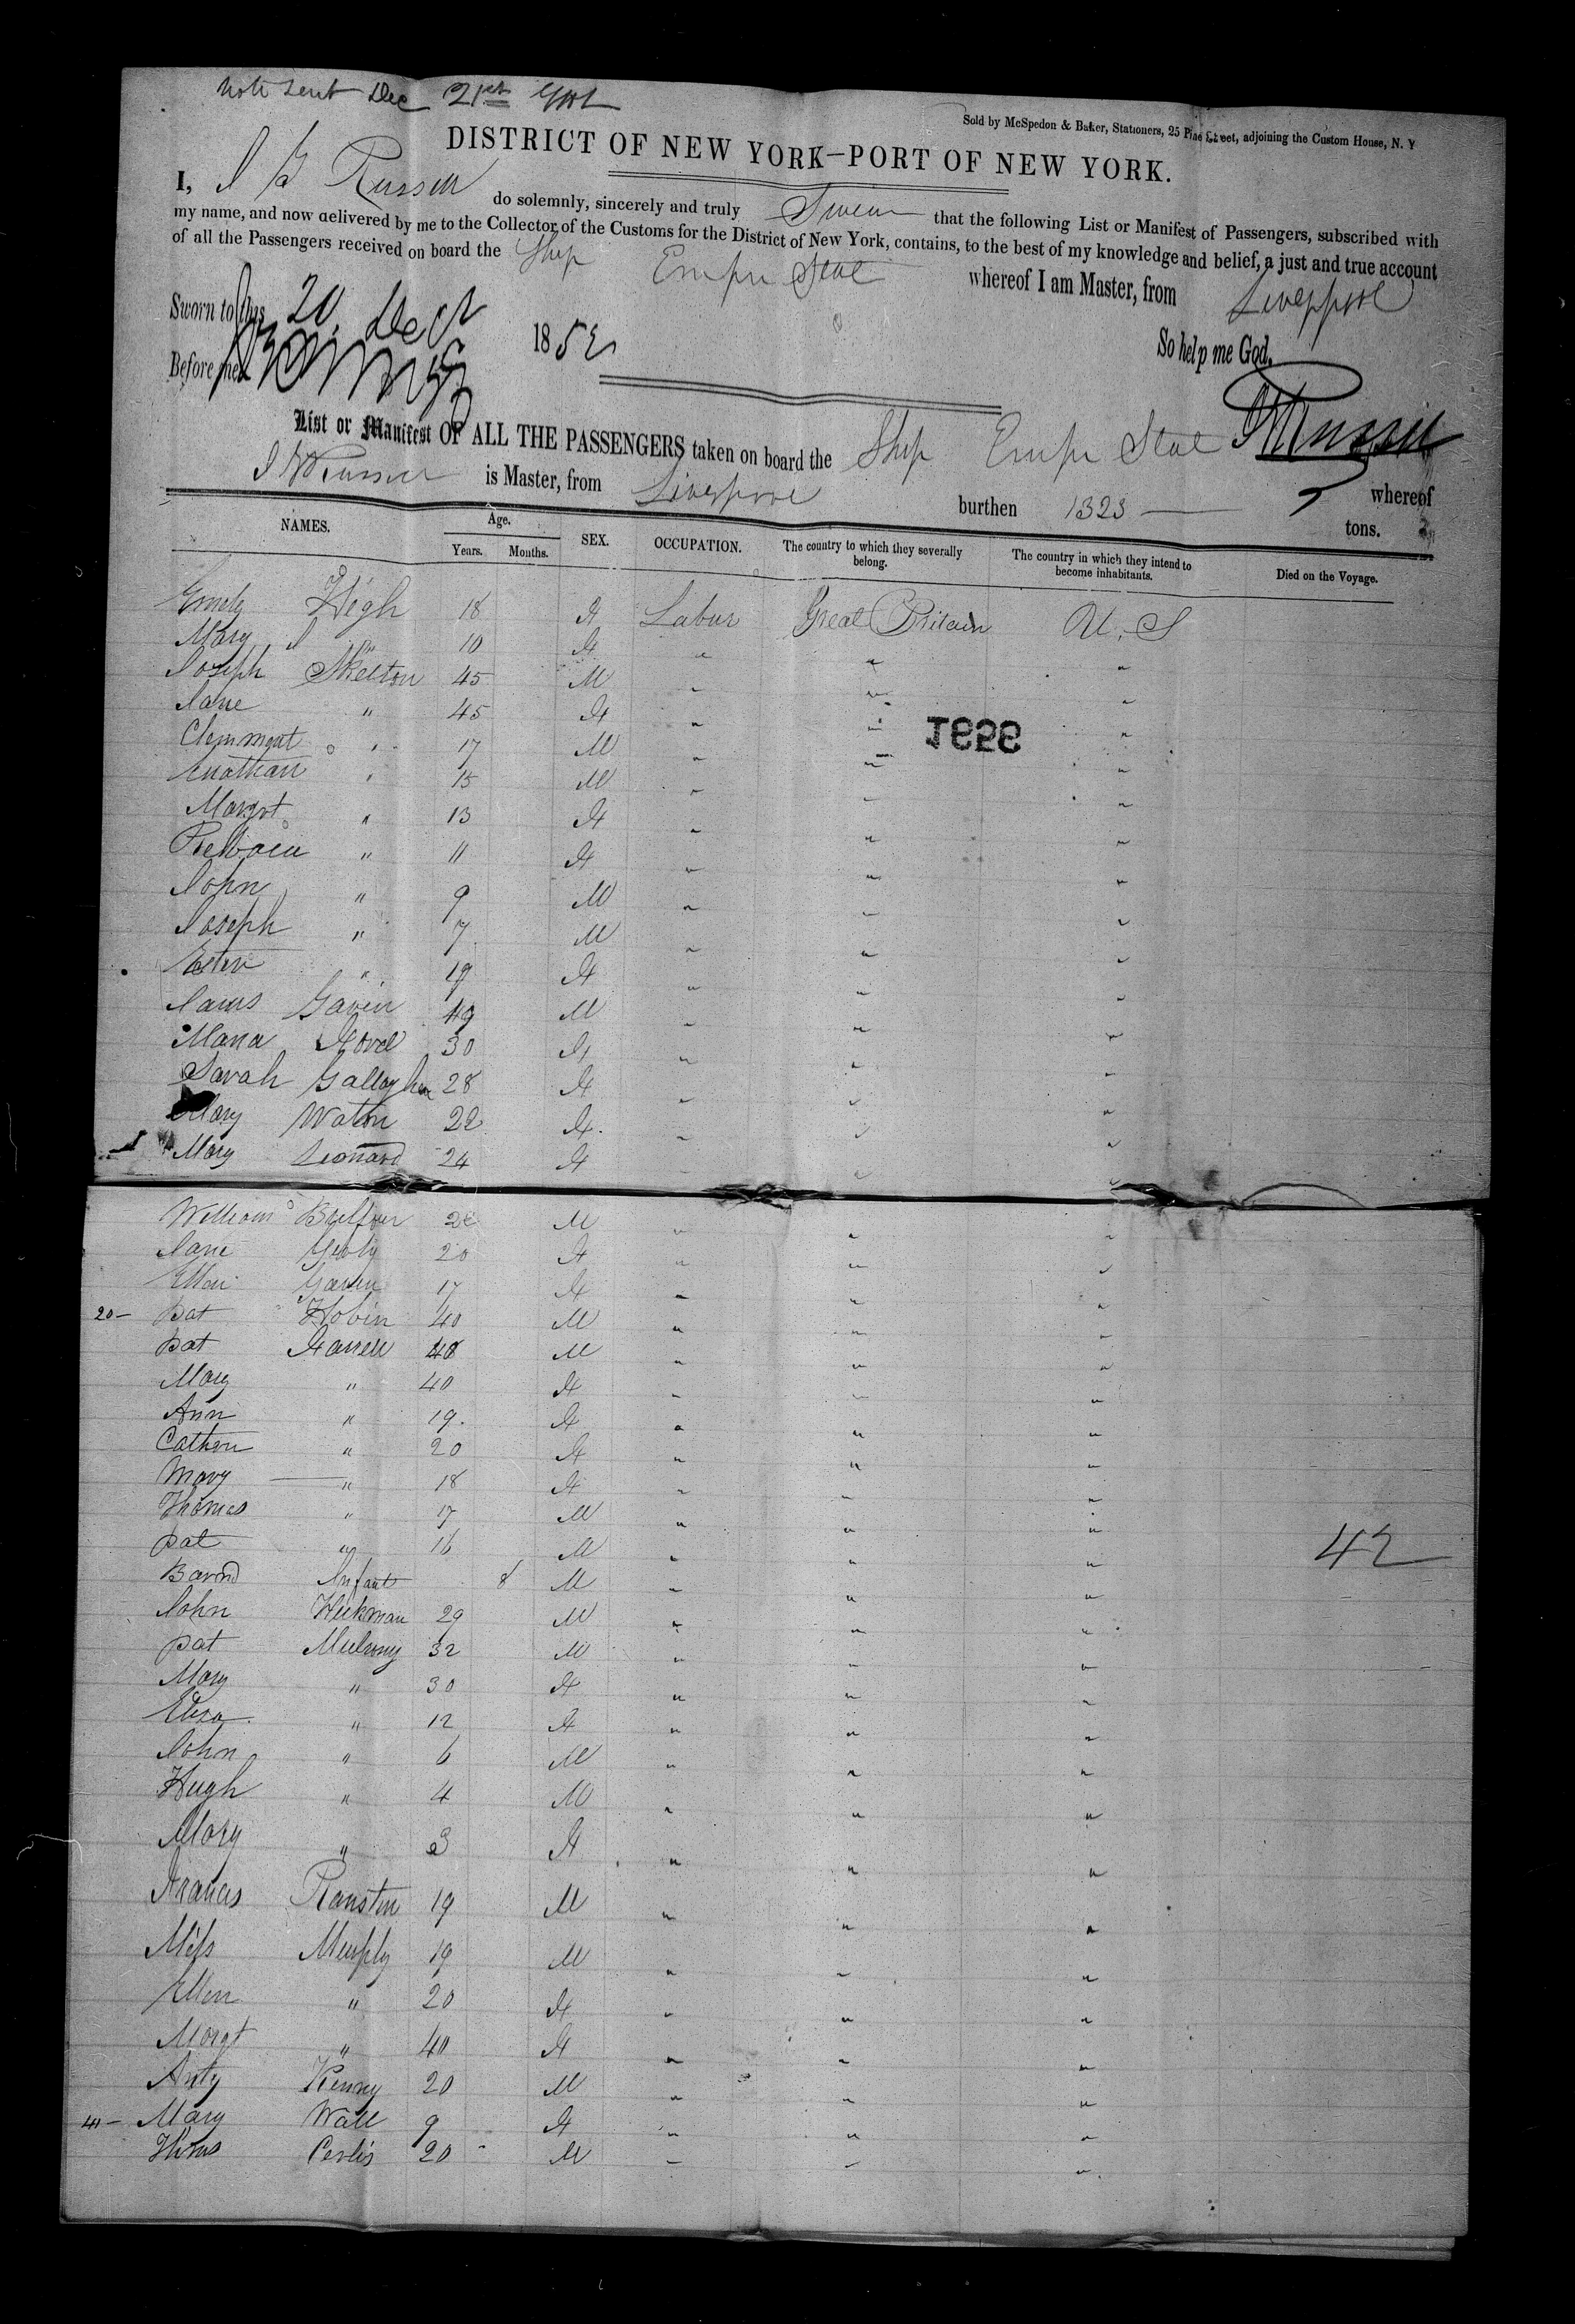 Note sent Dec 21st
Sold by McSpedon & Baker, Stationers, 25 Pine Street, adjoining the Custom House, N. Y
DISTRICT OF NEW YORK—PORT OF NEW YORK.
I, J G Russell do solemnly, sincerely and truly Swear that the following List or Manifest of Passengers, subscribed with
my name, and now delivered by me to the Collector of the Customs for the District of New York, contains, to the best of my knowledge and belief, a just and true account
of all the Passengers received on board the Ship Empire State whereof I am Master, from Liverpool
Sworn to this 20. Dect 1852
So help me God.
Before me
List or Manifest OF ALL THE PASSENGERS taken on board the Ship Empire State whereof
J Russell is Master, from Liverpool burthen 1323 tons.
NAMES. Age. Years. Months. SEX. OCCUPATION. The country to which they severally belong. The country in which they intend to become inhabitants. Died on the Voyage.
High 18 F Labur Great Britain U. S
Mary J " 10 F " " "
Joseph Skelton 45 M " " "
Jane " 45 F " " "
Clemment " 17 M " " "
" 15 M " " "
Margrt " 13 F " " "
Rebbaca " 11 F " " "
John " 9 M " " "
Joseph " 7 M " " "
Ester " 19 F " " "
James Gavin 49 M " " "
Maria 30 F " " "
Sarah Gallagher 28 F " " "
Mary Waton 22 F " " "
Mary Leonard 24 F " " "
William M " " "
Jane 20 F " " "
Ellen Gaven 17 F " " "
20 — Pat Hobin 40 M " " "
Pat Farrell 48 M " " "
Mary " 40 F " " "
Ann " 19. F " " "
Cathern " 20 F " " "
Mary " 18 F " " "
Thomas " 17 M " " "
Pat " 16 M " " "
Infant 8 M " " "
John Hickman 29 M " " "
Pat Mulrony 32 M " " "
Mary " 30 F " " "
Eliza " 12 F " " "
John " 6 M " " "
Hugh " 4 M " " "
Mary " 3 F " " "
Francis Ranstin 19 M " " "
Murphy 19 M " " "
Ellen " 20 F " " "
Margt " 40 F " " "
Anty Kenny 20 M " " "
Mary Wall 9 F " " "
20 M " " "
42